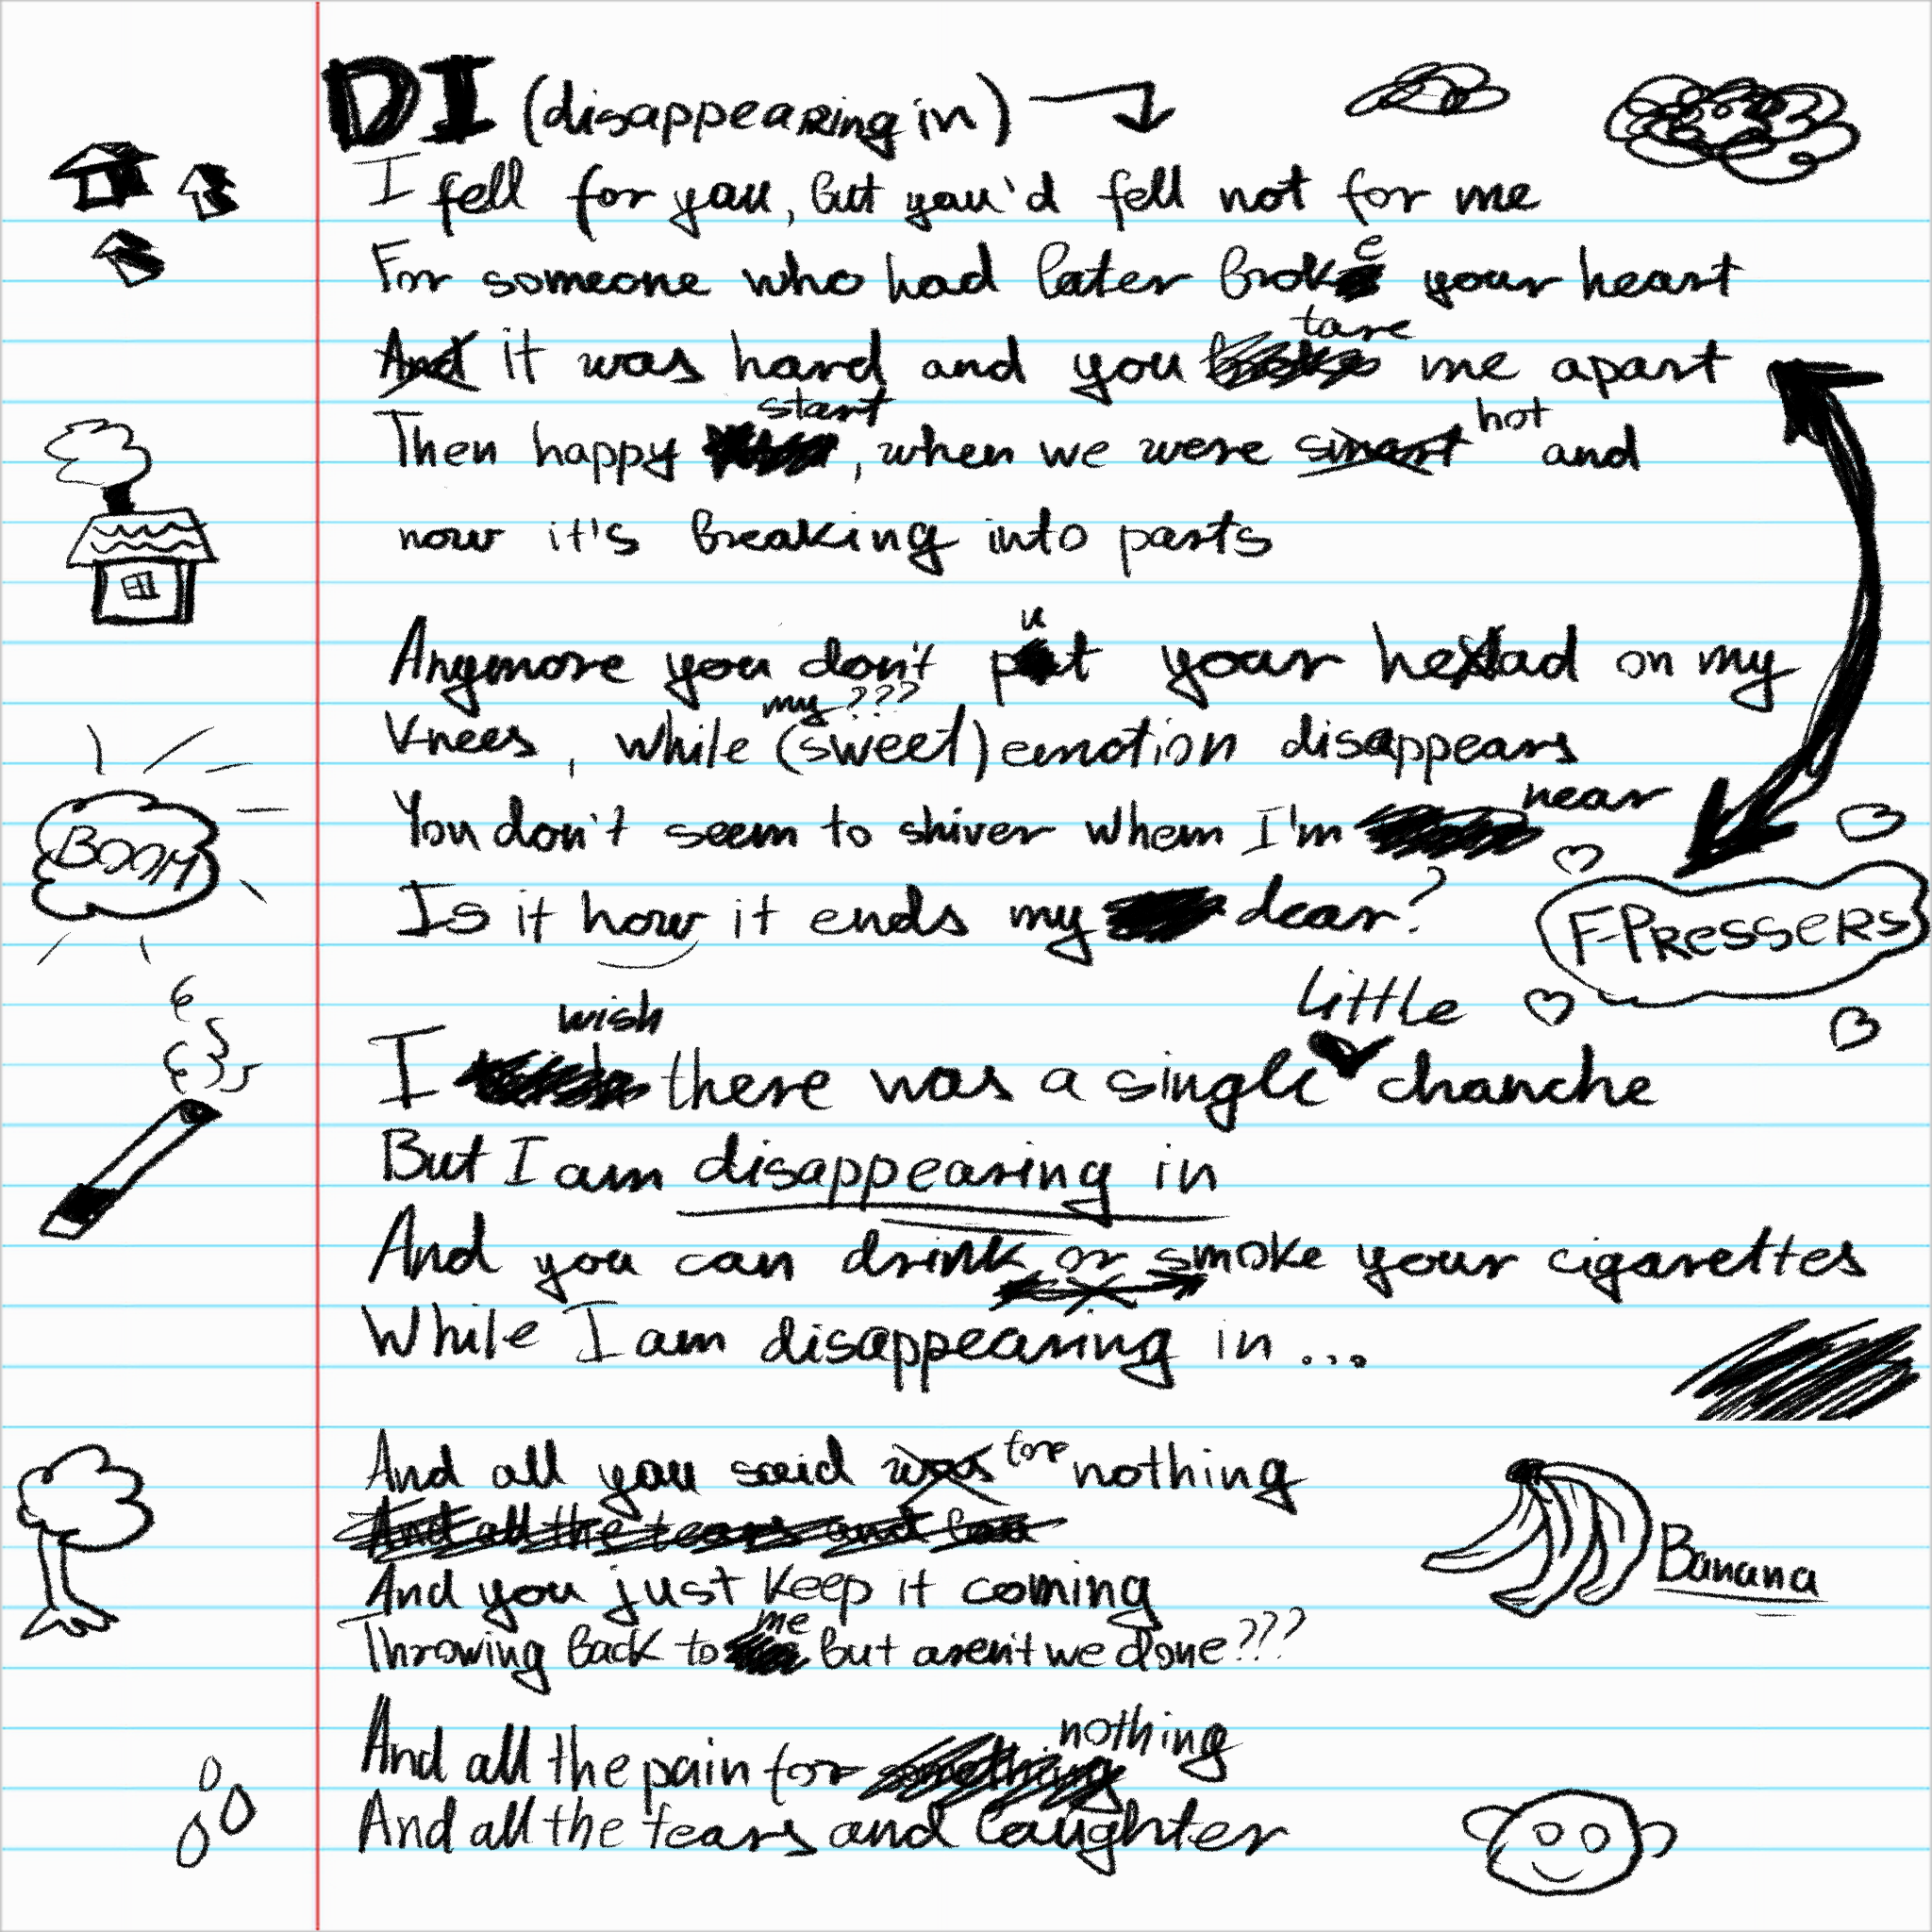 DI (disappearing in)
I fell for you, but you'd fell not for me
For someone who had later broke your heart
And it was hard and you broke tare me apart
Then happy start, when we were smart hot and
now it's breaking into parts
Anymore you don't put your head on my
knees, while (sweet) my??? emotion disappears
You don't seem to shiver when I'm near
Is it how it ends my dear?
BOOM
F-PRESSERS
I wish there was a single little chanche
But I am disappearing in
And you can drink or smoke your cigarettes
While I am disappearing in...
And all you said was for nothing
And all the tears and lau
And you just keep it coming
Banana
Throwing back to me but aren't we done???
And all the pain for something nothing
And all the tears and laughter